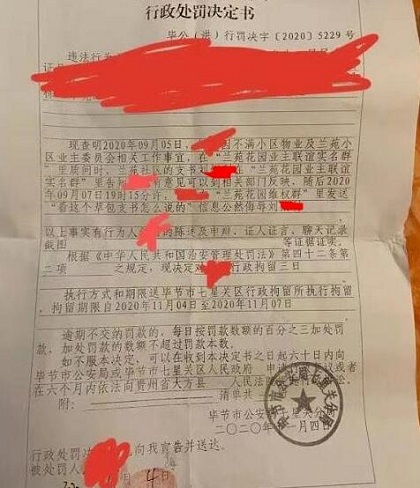 行政处罚决定书
毕公（洪）行罚决字〔2020〕5229号
违法行为
现查明2020年09月05日， 因不满小区物业及兰苑小
区业主委员会相关工作事宜，在“兰苑花园业主联谊实名群”
里质问时，兰苑社区的支书刘 在“兰苑花园业主联谊
实名群”里告 所有意见可以到相关部门反映，随后2020
年09月07日19时15分许， 在“兰苑花园维权群”里发送
“看这个草包支书怎么说的”信息公然侮辱刘
以上事实有行为人 的陈述及申辩，证人证言，聊天记录
截图 等证据证实。
根据《中华人民共和国治安管理处罚法》第四十二条第
二项 之规定，现决定对 行政拘留三日
执行方式和期限送毕节市七星关区行政拘留所执行拘留
，拘留期限自2020年11月04日至2020年11月07日
逾期不交纳罚款的，每日按罚款数额的百分之三加处罚
款，加处罚款的数额不超过罚款本数。
如不服本决定，可以在收到本决定书之日起六十日内向
毕节市公安局或毕节市七星关区人民政府 申请行政复议或者
在六个月内依法向贵州省大方县 人民法
附： 清单共
毕节市公安局七星关分局
二〇二〇年 一月四
行政处罚决 向我宣告并送达。
被处罚人
4日